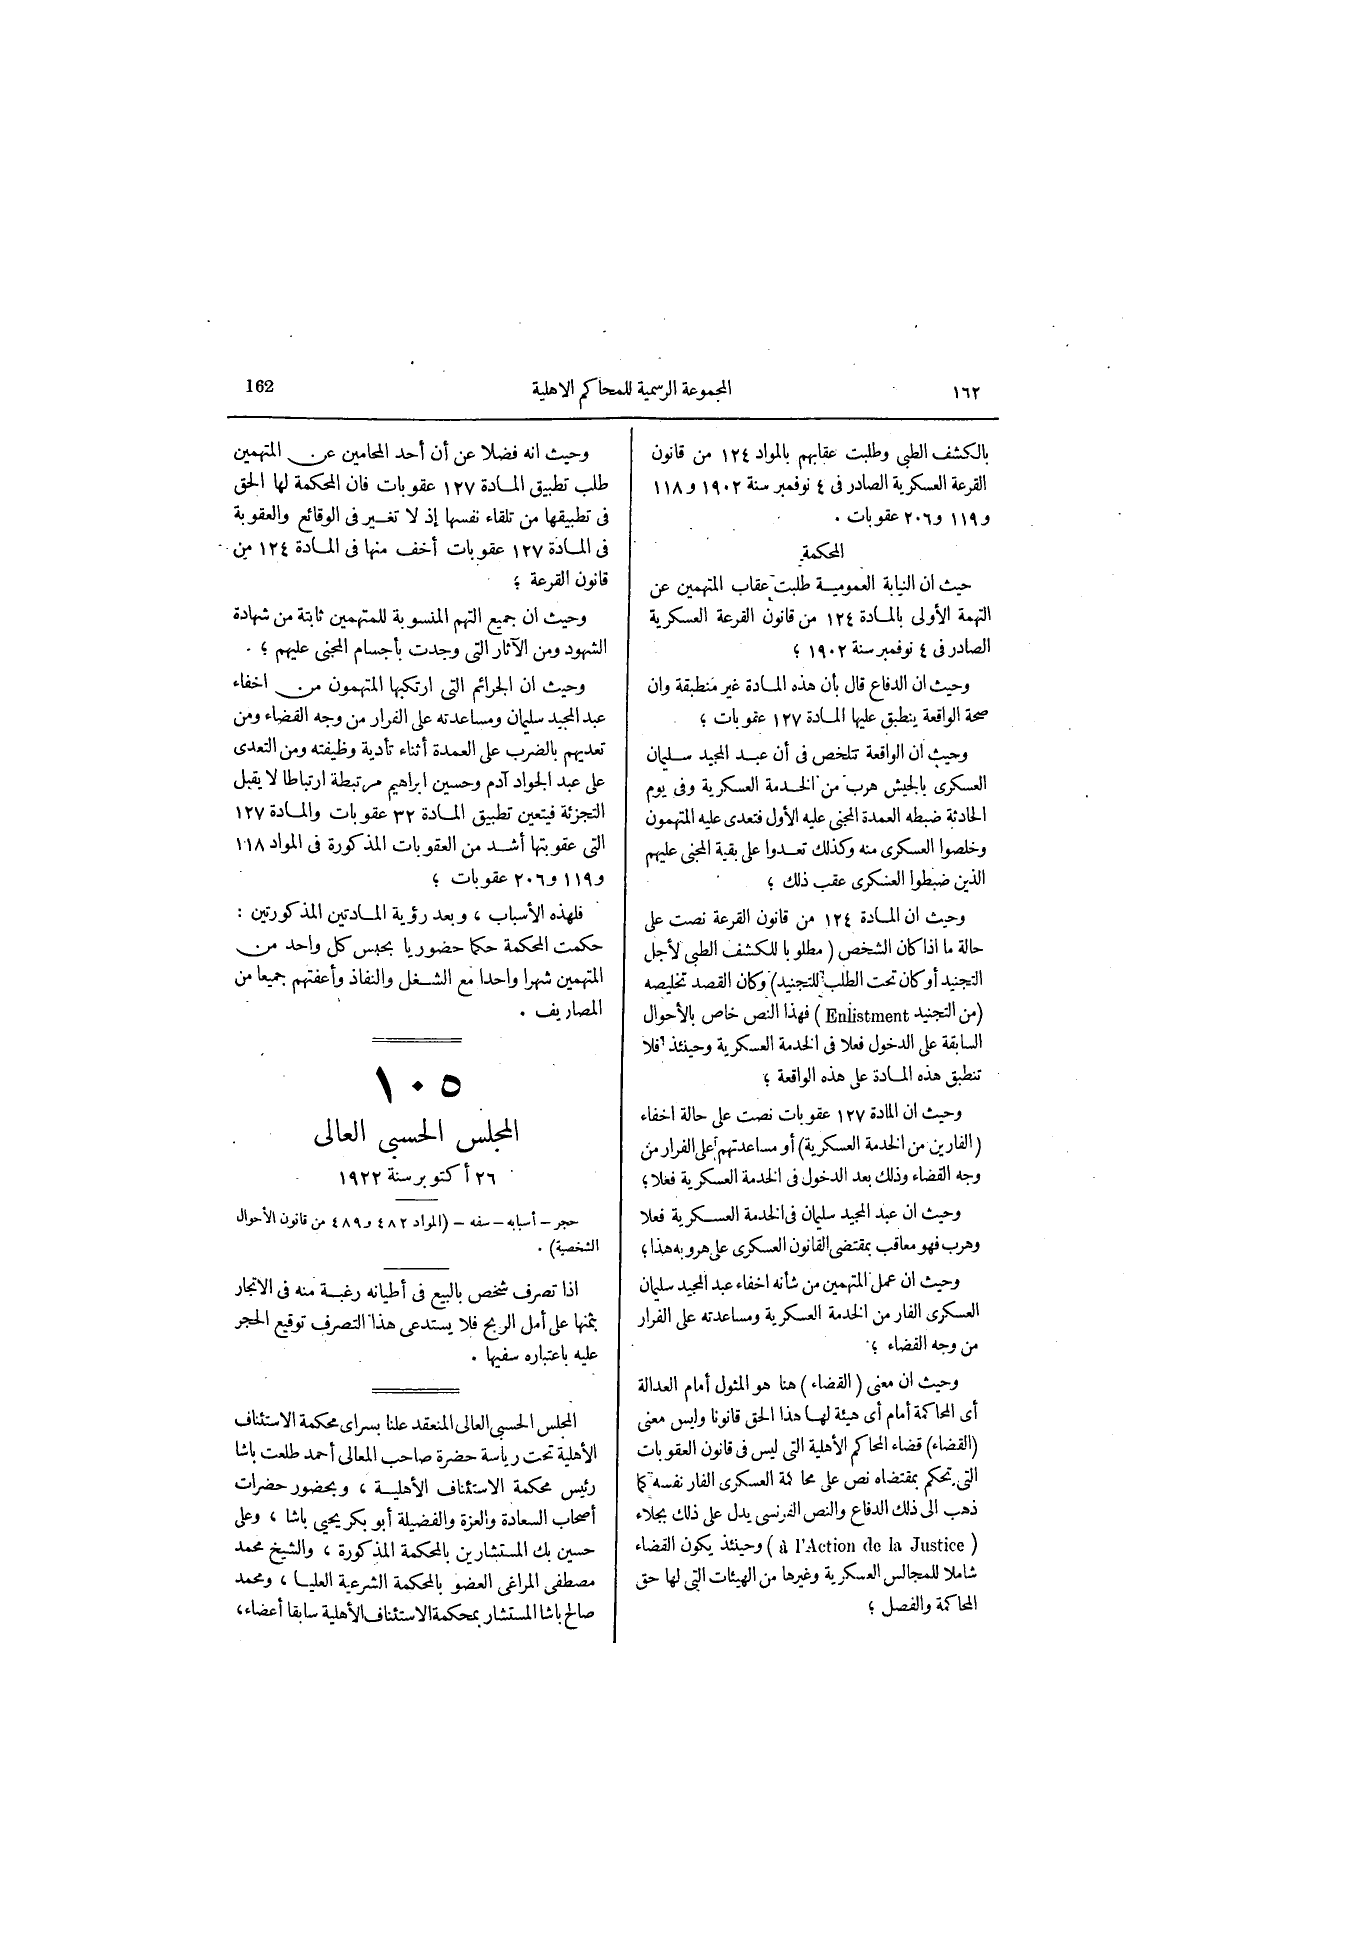 ١٦٢
المجموعة الرسمية للمحاكم الاهلية
162
بالكشف الطبى وطلبت عقابهم بالمواد ١٢٤ من قانون
القرعة العسكرية الصادر فى ٤ نوفمبر سنة ١٩٠٢ و ١١٨
و ١١٩ و ٢٠٦ عقوبات .
المحكمة
حيث ان النيابة العمومية طلبت عقاب المتهمين عن
التهمة الأولى بالمادة ١٢٤ من قانون القرعة العسكرية
الصادر فى ٤ نوفمبر سنة ١٩٠٢ ؛
وحيث ان الدفاع قال بأن هذه المادة غير منطبقة وان
صحة الواقعة ينطبق عليها المادة ١٢٧ عقوبات ؛
وحيث ان الواقعة تتلخص فى أن عبد المجيد سليمان
العسكرى بالجيش هرب من الخدمة العسكرية وفى يوم
الحادثة ضبطه العمدة المجنى عليه الأول فتعدى عليه المتهمون
وخلصوا العسكرى منه وكذلك تعدوا على بقية المجنى عليهم
الذين ضبطوا العسكرى عقب ذلك ؛
وحيث ان المادة ١٢٤ من قانون القرعة نصت على
حالة ما اذا كان الشخص ( مطلوبا للكشف الطبى لأجل
التجنيد أو كان تحت الطلب للتجنيد) وكان القصد تخليصه
(من التجنيد Enlistment ) فهذا النص خاص بالأحوال
السابقة على الدخول فعلا فى الخدمة العسكرية وحينئذ فلا
تنطبق هذه المادة على هذه الواقعة ؛
وحيث ان المادة ١٢٧ عقوبات نصت على حالة اخفاء
(الفارين من الخدمة العسكرية) أو مساعدتهم على الفرار من
وجه القضاء وذلك بعد الدخول فى الخدمة العسكرية فعلا ؛
وحيث ان عبد المجيد سليمان فى الخدمة العسكرية فعلا
وهرب فهو معاقب بمقتضى القانون العسكرى على هروبه هذا ؛
وحيث ان عمل المتهمين من شأنه اخفاء عبد المجيد سليمان
العسكرى الفار من الخدمة العسكرية ومساعدته على الفرار
من وجه القضاء ؛
وحيث ان معنى ( القضاء ) هنا هو المثول أمام العدالة
أى المحاكمة أمام أى هيئة لها هذا الحق قانونا وليس معنى
(القضاء) قضاء المحاكم الأهلية التى ليس فى قانون العقوبات
التى تحكم بمقتضاه نص على محاكمة العسكرى الفار نفسه كما
ذهب الى ذلك الدفاع والنص الفرنسى يدل على ذلك بجلاء
( à l'Action de la Justice ) وحينئذ يكون القضاء
شاملا للمجالس العسكرية وغيرها من الهيئات التى لها حق
المحاكمة والفصل ؛
وحيث انه فضلا عن أن أحد المحامين عن المتهمين
طلب تطبيق المادة ١٢٧ عقوبات فان المحكمة لها الحق
فى تطبيقها من تلقاء نفسها إذ لا تغيير فى الوقائع والعقوبة
فى المادة ١٢٧ عقوبات أخف منها فى المادة ١٢٤ من
قانون القرعة ؛
وحيث ان جميع التهم المنسوبة للمتهمين ثابتة من شهادة
الشهود ومن الآثار التى وجدت بأجسام المجنى عليهم ؛
وحيث ان الجرائم التى ارتكبها المتهمون من اخفاء
عبد المجيد سليمان ومساعدته على الفرار من وجه القضاء ومن
تعديهم بالضرب على العمدة أثناء تأدية وظيفته ومن التعدى
على عبد الجواد آدم وحسين ابراهيم مرتبطة ارتباطا لا يقبل
التجزئة فيتعين تطبيق المادة ٣٢ عقوبات والمادة ١٢٧
التى عقوبتها أشد من العقوبات المذكورة فى المواد ١١٨
و ١١٩ و ٢٠٦ عقوبات ؛
فلهذه الأسباب ، وبعد رؤية المادتين المذكورتين :
حكمت المحكمة حكما حضوريا بحبس كل واحد من
المتهمين شهرا واحدا مع الشغل والنفاذ وأعفتهم جميعا من
المصاريف .
١٠٥
المجلس الحسبى العالى
٢٦ أكتوبر سنة ١٩٢٢
حجر – أسبابه – سفه – (المواد ٤٨٢ و ٤٨٩ من قانون الأحوال
الشخصية) .
اذا تصرف شخص بالبيع فى أطيانه رغبة منه فى الاتجار
بثمنها على أمل الربح فلا يستدعى هذا التصرف توقيع الحجر
عليه باعتباره سفيها .
المجلس الحسبى العالى المنعقد علنا بسراى محكمة الاستئناف
الأهلية تحت رياسة حضرة صاحب المعالى أحمد طلعت باشا
رئيس محكمة الاستئناف الأهلية ، وبحضور حضرات
أصحاب السعادة والعزة والفضيلة أبو بكر يحيى باشا ، وعلى
حسين بك المستشارين بالمحكمة المذكورة ، والشيخ محمد
مصطفى المراغى العضو بالمحكمة الشرعية العليا ، ومحمد
صالح باشا المستشار بمحكمة الاستئناف الأهلية سابقا أعضاء ،